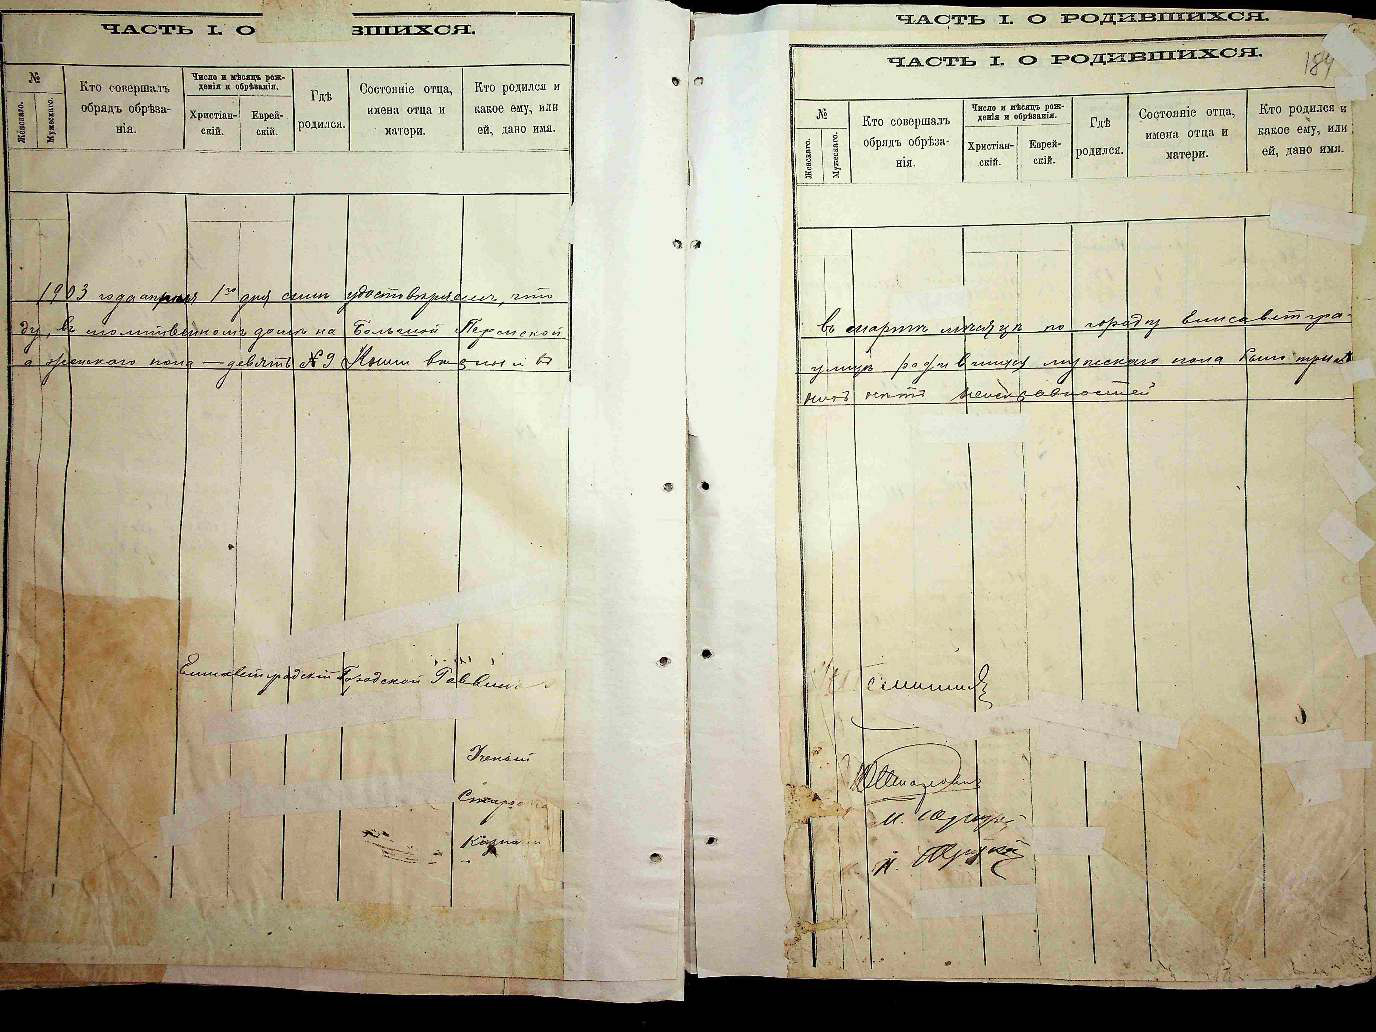 ЧАСТЬ I. О ЗШИХСЯ.
№
Женскаго.
Мужескаго.
Кто совершалъ
обрядъ обрѣза-
нія.
Число и мѣсяцъ рож-
денія и обрѣзанія.
Христіан-
скій.
Еврей-
скій.
Гдѣ
родился.
Состояніе отца,
имена отца и
матери.
Кто родился и
какое ему, или
ей, дано имя.
1903 года апреля 1го дня симъ удостовѣряемъ, что
ду, въ молитвенномъ домѣ на Большой Пермской
а женскаго пола — девять № 9
Елисаветградскій Городской Раввинъ
Ученый
Староста
Казначей
ЧАСТЬ I. О РОДИВШИХСЯ.
ЧАСТЬ I. О РОДИВШИХСЯ.
184
№
Женскаго.
Мужескаго.
Кто совершалъ
обрядъ обрѣза-
нія.
Число и мѣсяцъ рож-
денія и обрѣзанія.
Христіан-
скій.
Еврей-
скій.
Гдѣ
родился.
Состояніе отца,
имена отца и
матери.
Кто родился и
какое ему, или
ей, дано имя.
въ мартѣ мѣсяцѣ по городу Елисаветгра-
улицѣ родившихся мужскаго пола было
нѣтъ неисправностей